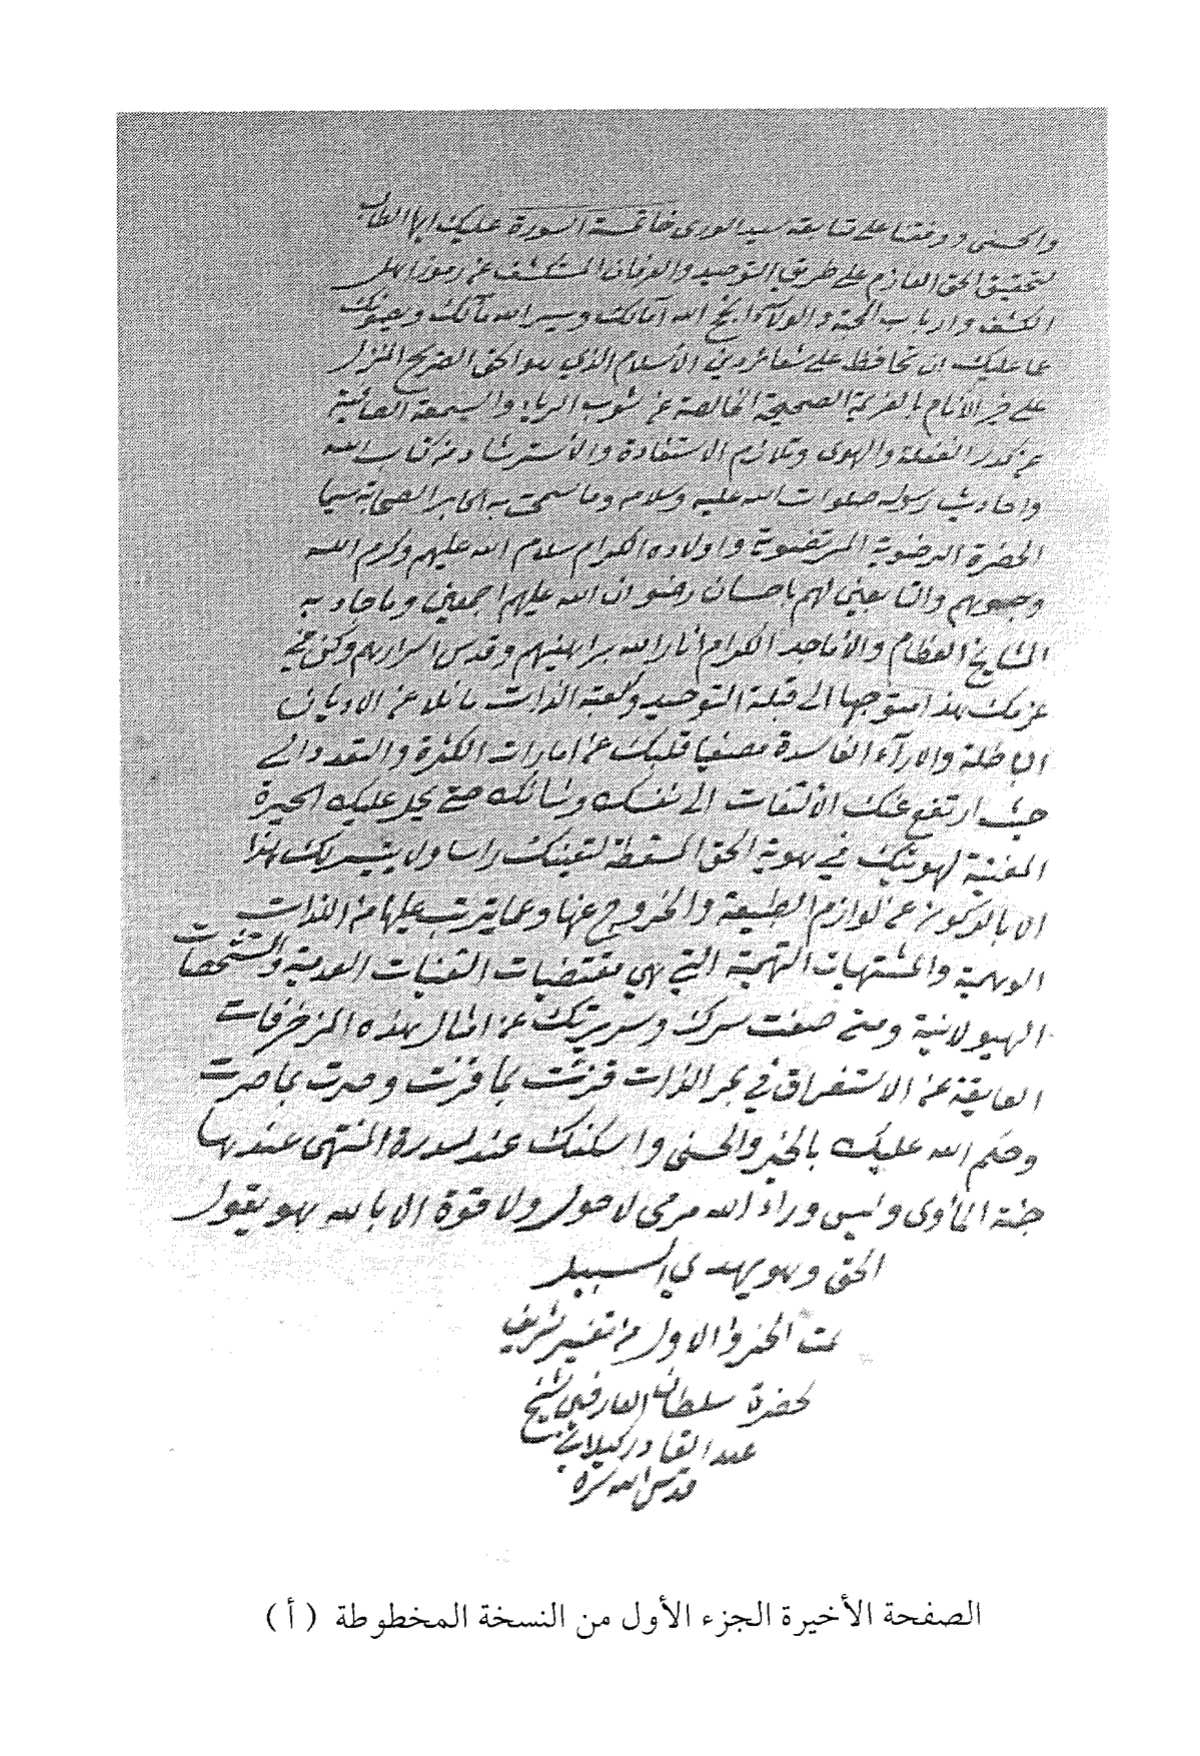 والحسنى ووفقنا على متابعة سيد الورى خاتمة السورة عليك ايها الطالب
لتحقيق الحق العازم على طريق التوحيد والعرفان المنكشف عن رموز اهل
الكشف وارباب المحبة والولاء انجح الله آمالك ويسر الله مآلك
عليك ان تحافظ على شعائر دين الاسلام الذي هو الحق الصريح المنزل
على خير الأنام بالعزيمة الصحيحة الخالصة عن شوب الرياء والسمعة الصافية
عن كدر الغفلة والهوى وتلازم الاستفادة والاسترشاد من كتاب الله
واحاديث رسوله صلوات الله عليه وسلامه وما سمحت به اكابر الصحابة سيما
الحضرة الرضوية المرتضوية واولاده الكرام سلام الله عليهم وكرم الله
وجوههم والتابعين لهم باحسان رضوان الله عليهم اجمعين وما جاد به
المشايخ العظام والأماجد الكرام أنار الله براهينهم وقدس اسرارهم وكن في
عزمك هذا متوجها الى قبلة التوحيد وكعبة الذات مائلا عن الاديان
الباطلة والاراء الفاسدة مصفيا قلبك عن امارات الكثرة والتعدد الى
حيث ارتفع عنك الألتفات الى نفسك وشانك حتى يحل عليك الحيرة
المفنية لهويتك في هوية الحق المسقطة لتعينك راسا ولا يتيسر لك هذا
الا بالركون عن لوازم الطبيعة والخروج عنها وعما يترتب عليها من اللذات
الوهمية والمشتهيات البهيمية التي هي مقتضيات التعينات العدمية والتشخصات
الهيولانية ومتى صفت سرك وسريرتك عن امثال هذه المزخرفات
العايقة عن الاستغراق في بحر الذات فزت بما فزت وصرت بما صرت
وختم الله عليك بالخير والحسنى واسكنك عند سدرة المنتهى عندها
جنة المأوى وليس وراء الله مرمى لا حول ولا قوة الا بالله هو يقول
الحق وهو يهدي السبيل
تمت الجزو الاول من تفسير شريف
لحضرة سلطان العارفين شيخ
عبد القادر كيلاني
قدس الله سره
الصفحة الأخيرة الجزء الأول من النسخة المخطوطة ( أ )